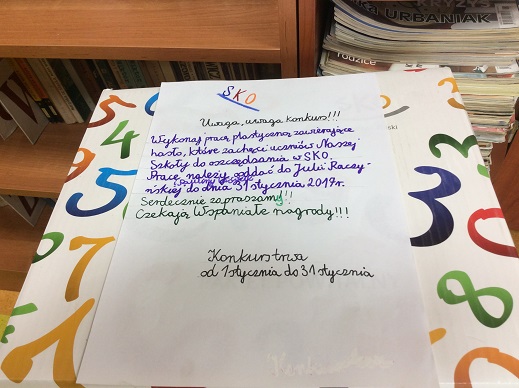 URBANIAK
rodzice
SKO
Uwaga, uwaga konkurs!!!
Wykonaj pracę plastyczną zawierającą
hasło, które zachęci uczniów Naszej
Szkoły do oszczędzania w SKO.
Pracę należy oddać do Julii Raczy-
ńskiej do dnia 31 stycznia 2017r.
Serdecznie zapraszamy!!
Czekają Wspaniałe nagrody!!!
Konkurs trwa
od 1 stycznia do 31 stycznia